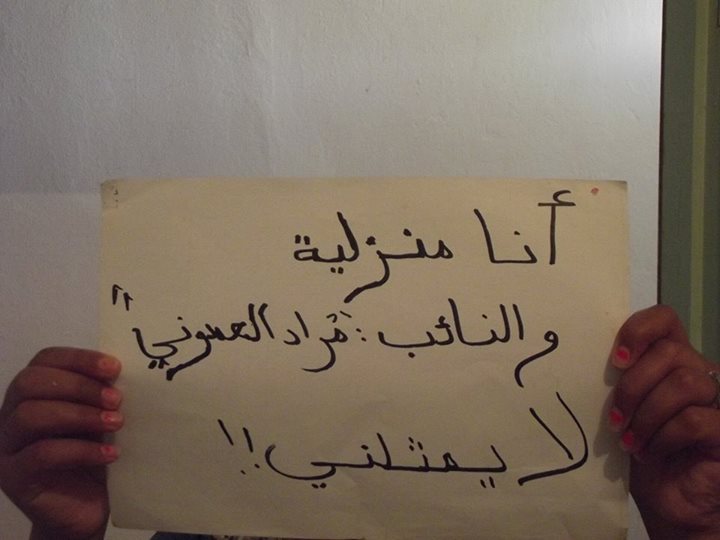 أنا منزلية
والنائب: "مراد العمدوني"
لا يمثلني!!